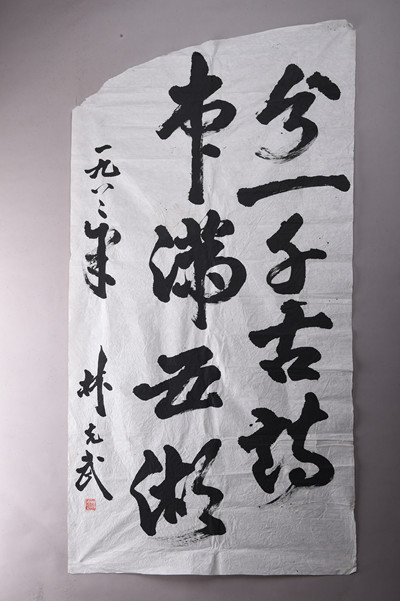 分一千古诗
本满五湖
一九八二年
林克武